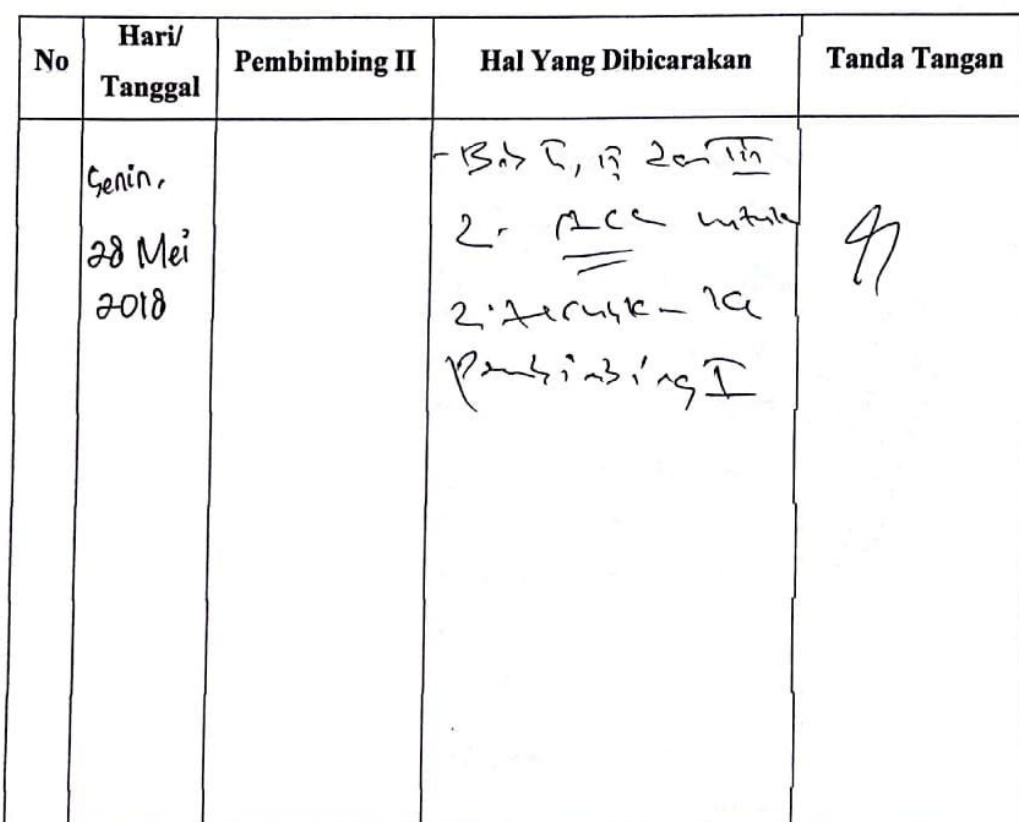 No Hari/ Tanggal Pembimbing II Hal Yang Dibicarakan Tanda Tangan
Senin,
28 Mei
2018
- Bab I, II dan III
di ACC untuk
diteruskan ke
Pembimbing I